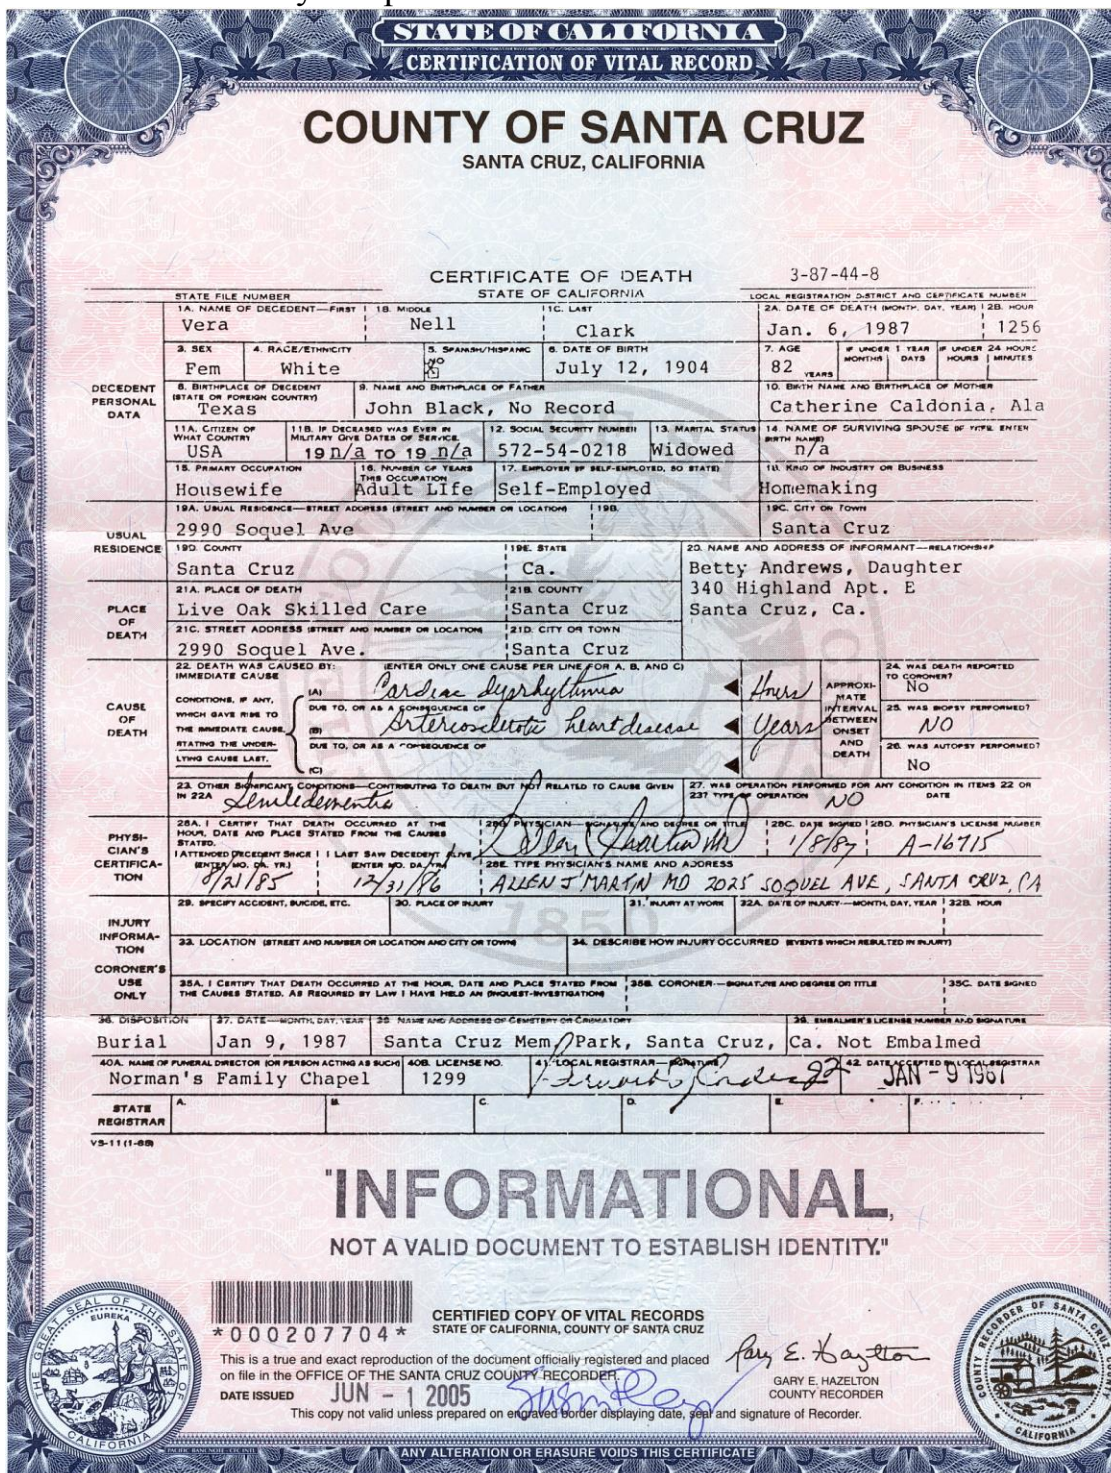 STATE OF CALIFORNIA
CERTIFICATION OF VITAL RECORD
COUNTY OF SANTA CRUZ
SANTA CRUZ, CALIFORNIA
CERTIFICATE OF DEATH 3-87-44-8
STATE FILE NUMBER STATE OF CALIFORNIA LOCAL REGISTRATION DISTRICT AND CERTIFICATE NUMBER
1A. NAME OF DECEDENT—FIRST 1B. MIDDLE 1C. LAST 2A. DATE OF DEATH (MONTH, DAY, YEAR) 2B. HOUR
Vera Nell Clark Jan. 6, 1987 1256
3. SEX 4. RACE/ETHNICITY 5. SPANISH/HISPANIC 6. DATE OF BIRTH 7. AGE IF UNDER 1 YEAR IF UNDER 24 HOURS
MONTHS DAYS HOURS MINUTES
Fem White NO July 12, 1904 82 YEARS
DECEDENT PERSONAL DATA
8. BIRTHPLACE OF DECEDENT (STATE OR FOREIGN COUNTRY) 9. NAME AND BIRTHPLACE OF FATHER 10. BIRTH NAME AND BIRTHPLACE OF MOTHER
Texas John Black, No Record Catherine Caldonia, Ala
11A. CITIZEN OF WHAT COUNTRY 11B. IF DECEASED WAS EVER IN MILITARY GIVE DATES OF SERVICE. 12. SOCIAL SECURITY NUMBER 13. MARITAL STATUS 14. NAME OF SURVIVING SPOUSE (IF WIFE, ENTER BIRTH NAME)
USA 19 n/a TO 19 n/a 572-54-0218 Widowed n/a
15. PRIMARY OCCUPATION 16. NUMBER OF YEARS THIS OCCUPATION 17. EMPLOYER (IF SELF-EMPLOYED, SO STATE) 18. KIND OF INDUSTRY OR BUSINESS
Housewife Adult LIfe Self-Employed Homemaking
USUAL RESIDENCE
19A. USUAL RESIDENCE—STREET ADDRESS (STREET AND NUMBER OR LOCATION) 19B. 19C. CITY OR TOWN
2990 Soquel Ave Santa Cruz
19D. COUNTY 19E. STATE 20. NAME AND ADDRESS OF INFORMANT—RELATIONSHIP
Santa Cruz Ca. Betty Andrews, Daughter
340 Highland Apt. E
Santa Cruz, Ca.
PLACE OF DEATH
21A. PLACE OF DEATH 21B. COUNTY
Live Oak Skilled Care Santa Cruz
21C. STREET ADDRESS (STREET AND NUMBER OR LOCATION) 21D. CITY OR TOWN
2990 Soquel Ave. Santa Cruz
CAUSE OF DEATH
22. DEATH WAS CAUSED BY: (ENTER ONLY ONE CAUSE PER LINE FOR A, B, AND C)
IMMEDIATE CAUSE
(A) Cardiac dysrhythmia Hours
CONDITIONS, IF ANY, WHICH GAVE RISE TO THE IMMEDIATE CAUSE, STATING THE UNDERLYING CAUSE LAST.
DUE TO, OR AS A CONSEQUENCE OF
(B) Arteriosclerotic heart disease Years
DUE TO, OR AS A CONSEQUENCE OF
(C)
APPROXIMATE INTERVAL BETWEEN ONSET AND DEATH
24. WAS DEATH REPORTED TO CORONER?
No
25. WAS BIOPSY PERFORMED?
NO
26. WAS AUTOPSY PERFORMED?
No
23. OTHER SIGNIFICANT CONDITIONS—CONTRIBUTING TO DEATH BUT NOT RELATED TO CAUSE GIVEN IN 22A
Senile dementia
27. WAS OPERATION PERFORMED FOR ANY CONDITION IN ITEMS 22 OR 23? TYPE OF OPERATION DATE
NO
PHYSICIAN'S CERTIFICATION
28A. I CERTIFY THAT DEATH OCCURRED AT THE HOUR, DATE AND PLACE STATED FROM THE CAUSES STATED.
I ATTENDED DECEDENT SINCE (ENTER MO. DA. YR.) I LAST SAW DECEDENT ALIVE (ENTER MO. DA. YR.)
8/21/85 12/31/86
28B. PHYSICIAN—SIGNATURE AND DEGREE OR TITLE 28C. DATE SIGNED 28D. PHYSICIAN'S LICENSE NUMBER
Allen J Martin MD 1/8/87 A-16715
28E. TYPE PHYSICIAN'S NAME AND ADDRESS
ALLEN J MARTIN MD 2025 SOQUEL AVE, SANTA CRUZ, CA
INJURY INFORMATION
29. SPECIFY ACCIDENT, SUICIDE, ETC. 30. PLACE OF INJURY 31. INJURY AT WORK 32A. DATE OF INJURY—MONTH, DAY, YEAR 32B. HOUR
33. LOCATION (STREET AND NUMBER OR LOCATION AND CITY OR TOWN) 34. DESCRIBE HOW INJURY OCCURRED (EVENTS WHICH RESULTED IN INJURY)
CORONER'S USE ONLY
35A. I CERTIFY THAT DEATH OCCURRED AT THE HOUR, DATE AND PLACE STATED FROM THE CAUSES STATED. AS REQUIRED BY LAW I HAVE HELD AN (INQUEST-INVESTIGATION) 35B. CORONER—SIGNATURE AND DEGREE OR TITLE 35C. DATE SIGNED
1850
36. DISPOSITION 37. DATE—MONTH, DAY, YEAR 38. NAME AND ADDRESS OF CEMETERY OR CREMATORY 39. EMBALMER'S LICENSE NUMBER AND SIGNATURE
Burial Jan 9, 1987 Santa Cruz Mem Park, Santa Cruz, Ca. Not Embalmed
40A. NAME OF FUNERAL DIRECTOR (OR PERSON ACTING AS SUCH) 40B. LICENSE NO. 41. LOCAL REGISTRAR—SIGNATURE 42. DATE ACCEPTED BY LOCAL REGISTRAR
Norman's Family Chapel 1299 JAN - 9 1987
STATE REGISTRAR A. B. C. D. E. F.
VS-11 (1-85)
"INFORMATIONAL,
NOT A VALID DOCUMENT TO ESTABLISH IDENTITY."
*000207704*
CERTIFIED COPY OF VITAL RECORDS
STATE OF CALIFORNIA, COUNTY OF SANTA CRUZ
This is a true and exact reproduction of the document officially registered and placed
on file in the OFFICE OF THE SANTA CRUZ COUNTY RECORDER.
DATE ISSUED JUN - 1 2005
Gary E. Hazelton
GARY E. HAZELTON
COUNTY RECORDER
This copy not valid unless prepared on engraved border displaying date, seal and signature of Recorder.
ANY ALTERATION OR ERASURE VOIDS THIS CERTIFICATE
THE GREAT SEAL OF THE STATE OF CALIFORNIA
EUREKA
COUNTY RECORDER OF SANTA CRUZ
CALIFORNIA